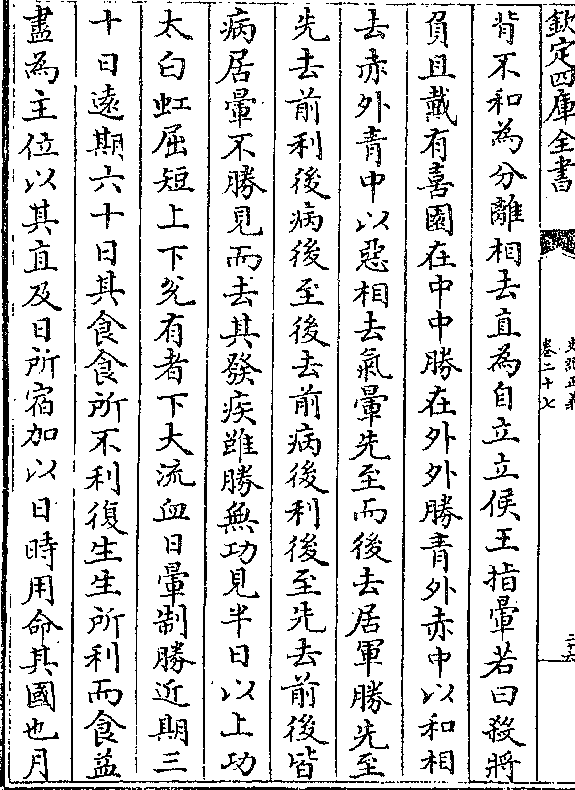 欽定四庫全書
史記正義
卷二十七
二十六
背不和為分離相去直為自立立侯王指暈若曰殺將
負且戴有喜圍在中中勝在外外勝青外赤中以和相
去赤外青中以惡相去氣暈先至而後去居軍勝先至
先去前利後病後至後去前病後利後至先去前後皆
病居暈不勝見而去其發疾雖勝無功見半日以上功
太白虹屈短上下兊有者下大流血日暈制勝近期三
十日遠期六十日其食食所不利復生生所利而食益
盡為主位以其直及日所宿加以日時用命其國也月